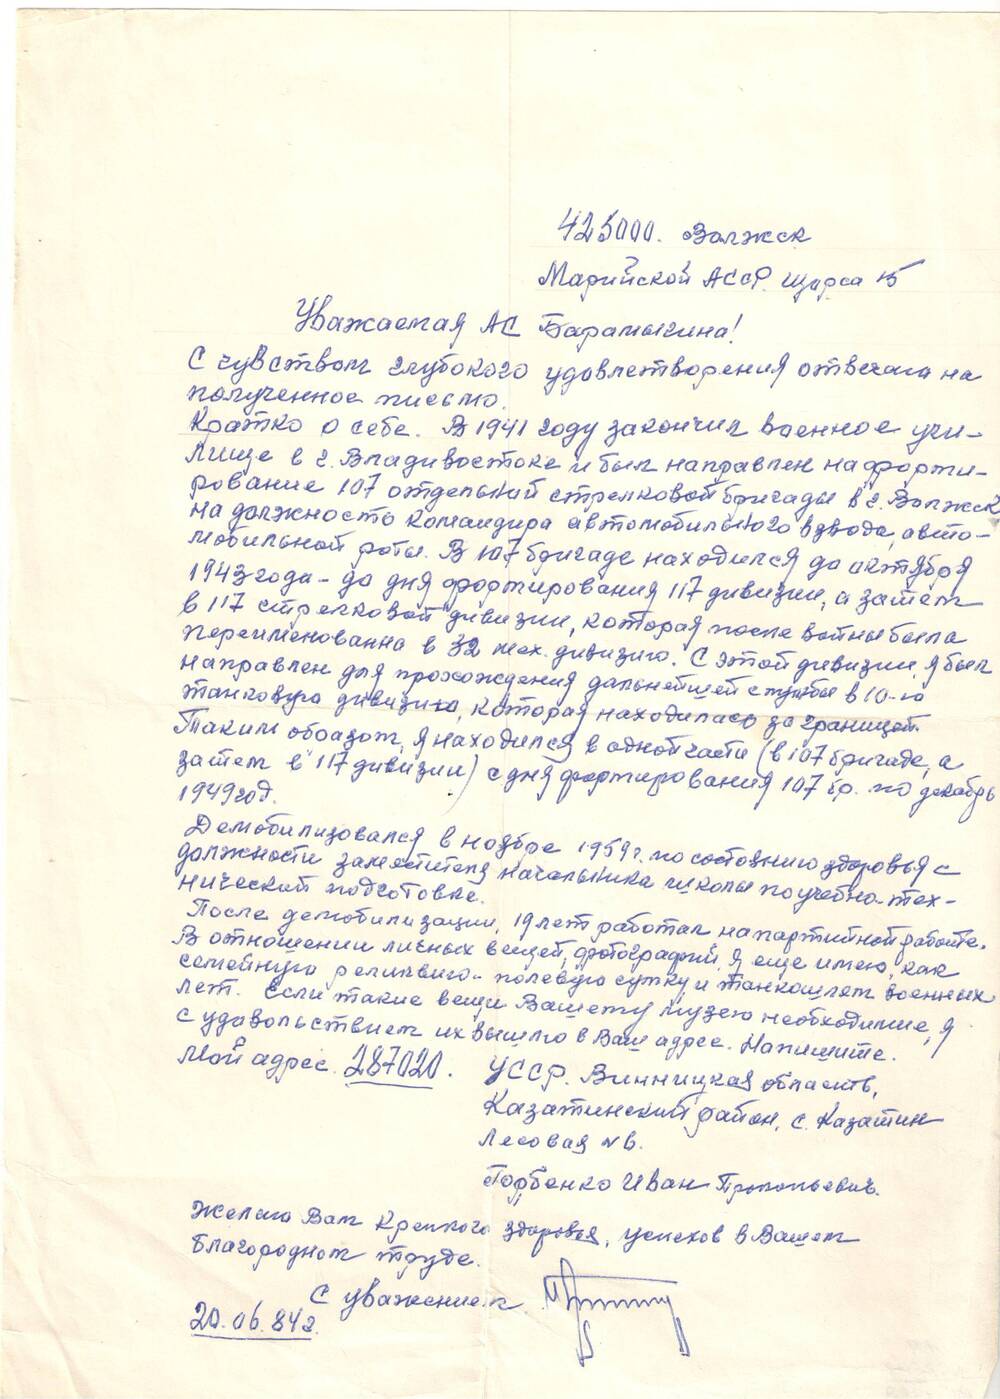 425000. Волжск
Марийской АССР. Щорса 15
Уважаемая АС Барамыгина!
С чувством глубокого удовлетворения отвечаю на
полученное письмо.
Кратко о себе. В 1941 году закончил военное учи-
лище в г. Владивостоке и был направлен на форми-
рование 107 отдельной стрелковой бригады в г. Волжск
на должность командира автомобильного взвода, авто-
мобильной роты. В 107 бригаде находился до октября
1943 года - до дня формирования 117 дивизии, а затем
в 117 стрелковой дивизии, которая после войны была
переименованна в 32 мех. дивизию. С этой дивизии я был
направлен для прохождения дальнейшей службы в 10-ю
танковую дивизию, которая находилась за границей.
Таким образом, я находился в одной части (в 107 бригаде, а
затем в 117 дивизии) с дня формирования 107 бр. по декабрь
1949 год.
Демобилизовался в ноябре 1959 г. по состоянию здоровья с
должности заместителя начальника школы по учебно-тех-
нический подготовке.
После демобилизации, 19 лет работал на партийной работе.
В отношении личных вещей, фотографий, я еще имею, как
семейную реликвию - полевую сумку и танкошлем военных
лет. Если такие вещи Вашему музею необходимые, я
с удовольствием их вышлю в Ваш адрес. Напишите.
Мой адрес 287020. УССР. Винницкая область,
Казатинский район, с. Казатин
Лесовая №6.
Горбенко Иван Прокопьевич.
Желаю Вам крепкого здоровья, успехов в Вашем
благородном труде.
С уважением
20.06.84г.